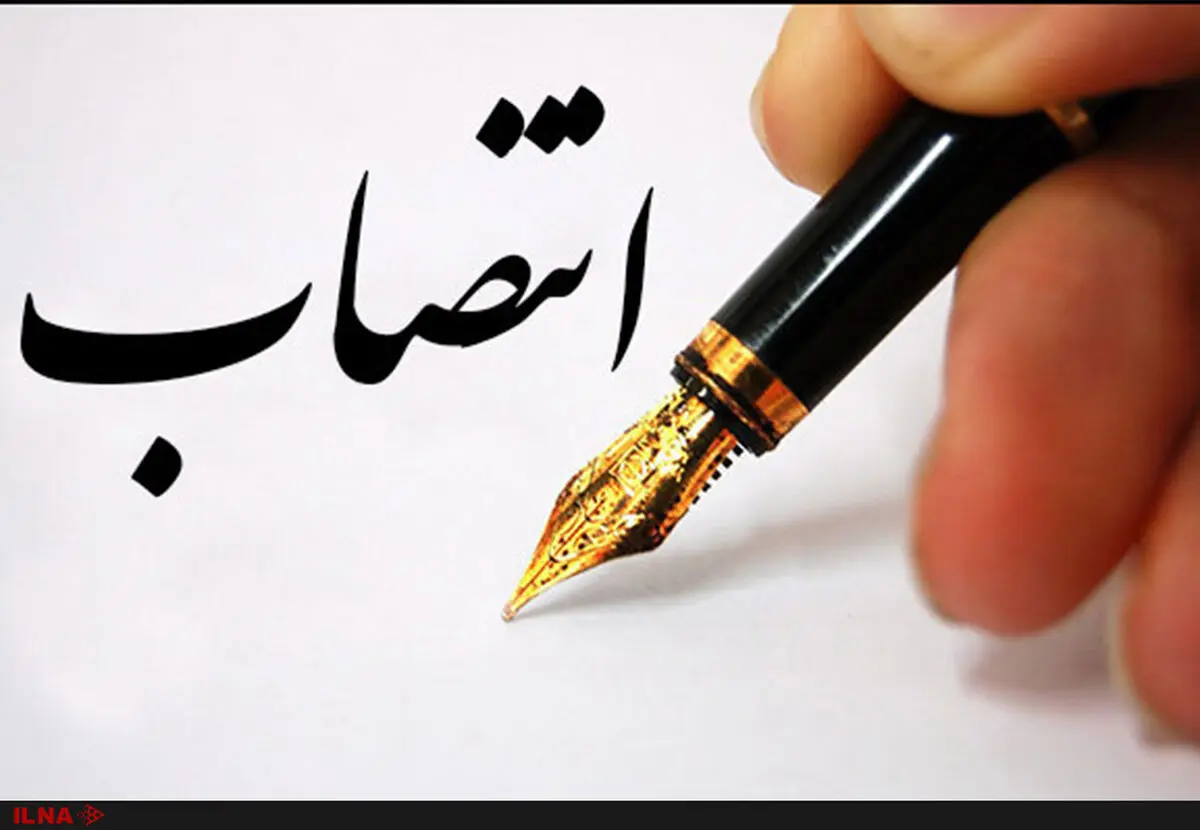 انتصاب
ILNA